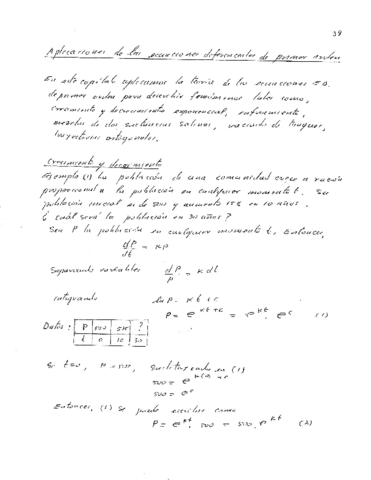 39
Aplicaciones de las ecuaciones diferenciales de primer orden
En este capítulo aplicamos la teoría de las ecuaciones
de primer orden para describir fenómenos tales como,
crecimiento y decrecimiento exponencial, enfriamiento,
mezclas de dos sustancias salinas, vaciado de tanques,
trayectorias ortogonales.
Crecimiento y decrecimiento
Ejemplo (1) La población de una comunidad crece a razón
proporcional a la población en cualquier momento t. Su
población inicial es de 500 y aumenta 15% en 10 años.
¿cuál será la población en 30 años?
Sea P la población en cualquier momento t. Entonces,
dP/dt = KP
Separando variables dP/P = K dt
integrando ln P = Kt + c
P = e^{Kt+c} = e^{Kt} . e^c (1)
Datos: P 500 575 ?
t 0 10 30
Si t=0, P=500, sustituyendo en (1)
500 = e^{K(0)+c}
500 = e^c
Entonces, (1) se puede escribir como
P = e^{Kt}. 500 = 500. e^{Kt} (2)